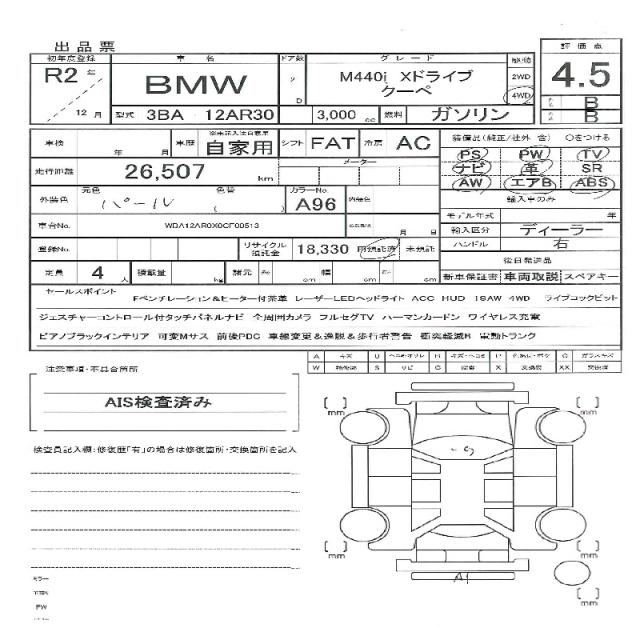 出品票
初年度登録 車名 ドア数 グレード 駆動 評価点
R2年 BMW 2D M440i Xドライブ クーペ 2WD 4WD 4.5
12月 型式 3BA 12AR30 3,000cc 燃料 ガソリン B B
車検 年 月 車歴 ※未記入は自家用 自家用 シフト FAT 冷房 AC 装備品(純正/社外 含) ○をつける
PS PW TV
走行距離 26,507 km メーター ナビ 革 SR
AW エアB ABS
外装色 元色 パール 色替 カラーNo. A96 内装色 輸入車のみ
モデル年式 年
車台No. 年 月 輸入区分 ディーラー
登録No. リサイクル預託金 18,330 預託済 未預託 ハンドル 右
後日発送品
定員 4人 積載量 kg 諸元 cm cm cm 新車保証書 車両取説 スペアキー
セールスポイント
Fベンチレーション&ヒーター付茶革 レーザーLEDヘッドライト ACC HUD 19AW 4WD ライブコックピット
ジェスチャーコントロール付タッチパネルナビ 全周囲カメラ フルセグTV ハーマンカードン ワイヤレス充電
ピアノブラックインテリア 可変Mサス 前後PDC 車線変更&逸脱&歩行者警告 衝突軽減B 電動トランク
注意事項・不具合箇所
AIS検査済み
検査員記入欄:修復歴「有」の場合は修復箇所・交換箇所を記入
mm mm
mm mm
mm
A1
PW